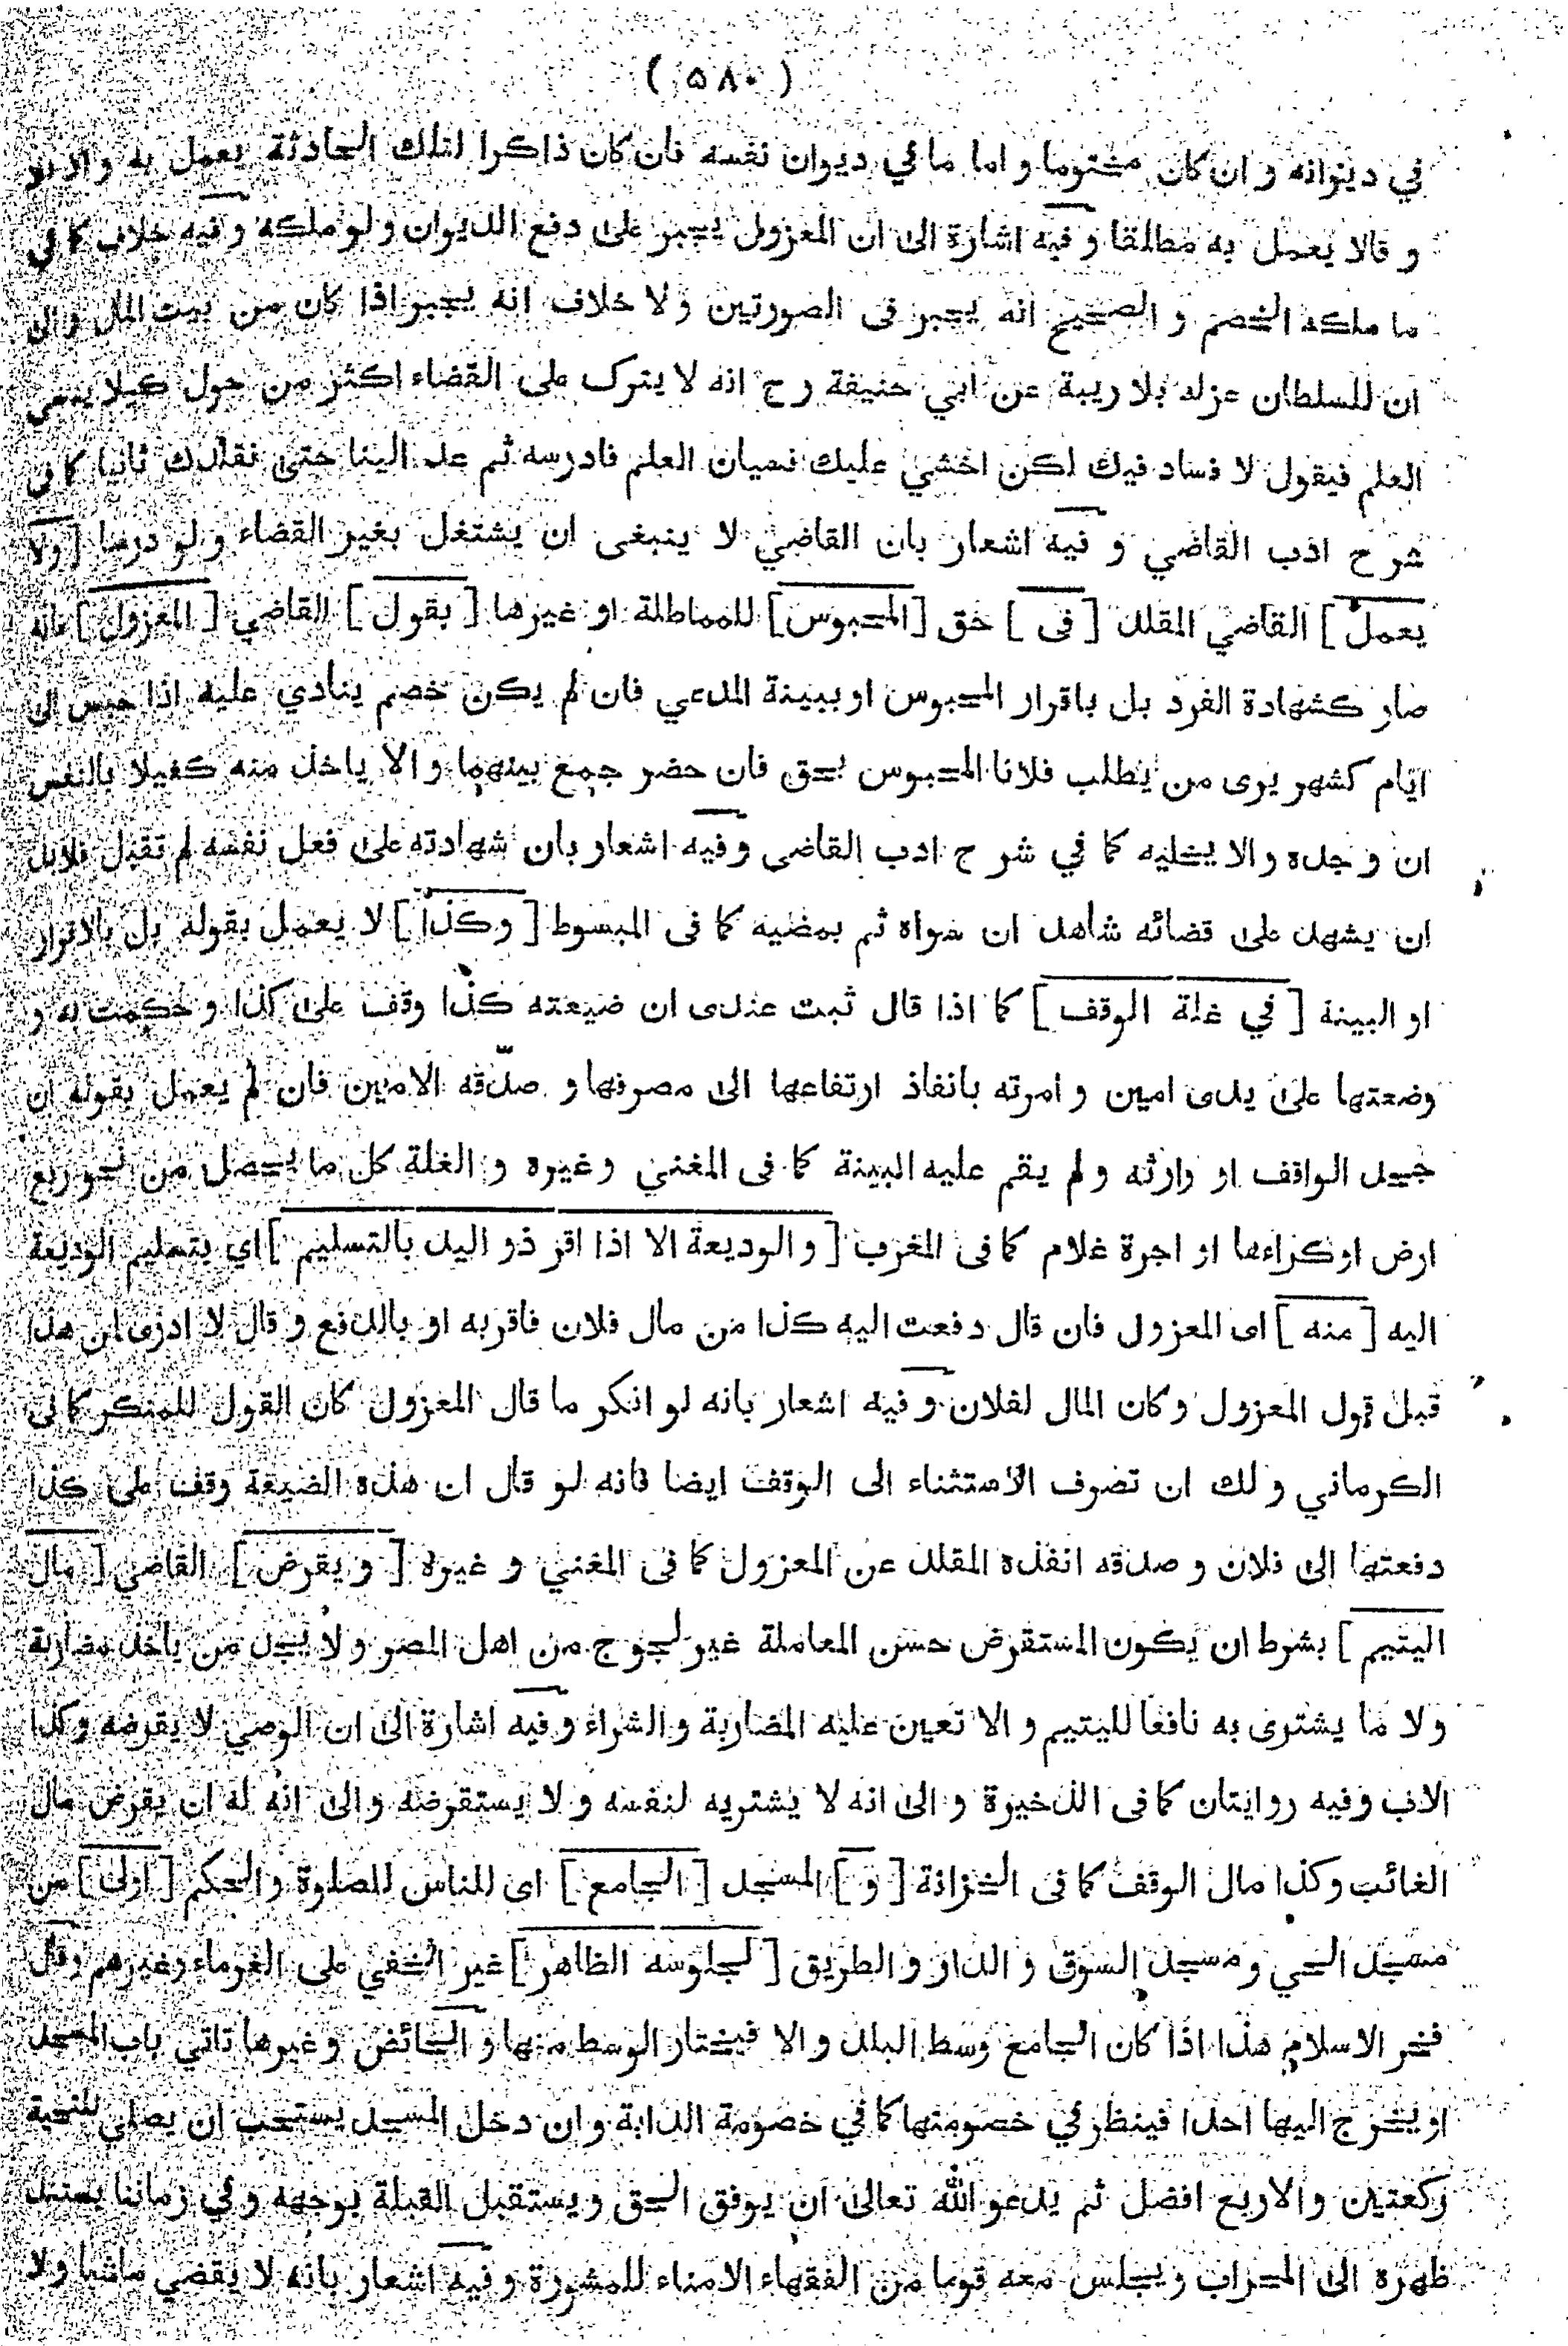 ( ۵۸۰ )
في ديوانه و ان كان مختوما و اما ما في ديوان نفسه فان كان ذاكرا لتلك الحادثة يعمل به و الا فلا
و قالا يعمل به مطلقا و فيه اشارة الى ان المعزول يجبر على دفع الديوان و لو ملكه و فيه خلاف كما في
ما ملكه الخصم و الصحيح انه يجبر فى الصورتين و لا خلاف انه يجبر اذا كان من بيت المال و الى
ان للسلطان عزله بلا ريبة عن ابي حنيفة رح انه لا يترک على القضاء اكثر من حول كيلا ينسى
العلم فيقول لا فساد فيك لكن اخشي عليك نسيان العلم فادرسه ثم عد الينا حتى نقلدك ثانيا كما فى
شرح ادب القاضي و فيه اشعار بان القاضي لا ينبغى ان يشتغل بغير القضاء و لو درسا [ ولا
يعمل ] القاضي المقلد [ فى ] حق [ المحبوس ] للمماطلة او غيرها [ بقول ] القاضي [ المعزول ] فانه
صار كشهادة الفرد بل باقرار المحبوس او ببينة المدعي فان لم يكن خصم ينادي عليه اذا حبس الى
ايام كشهر يرى من يطلب فلانا المحبوس بحق فان حضر جمع بينهما و الا ياخذ منه كفيلا بالنفس
ان وجده و الا يخليه كما في شرح ادب القاضى و فيه اشعار بان شهادته على فعل نفسه لم تقبل فلابد
ان يشهد على قضائه شاهد ان سواه ثم بمضيه كما فى المبسوط [ وكذا ] لا يعمل بقوله بل بالاقرار
او البينة [ في غلة الوقف ] كما اذا قال ثبت عندى ان ضيعته كذا وقف على كذا و حكمت به و
وضعتها على يدى امين و امرته بانفاذ ارتفاعها الى مصرفها و صدّقه الامين فان لم يعمل بقوله ان
جحد الواقف او وارثه و لم يقم عليه البينة كما فى المغني و غيره و الغلة كل ما يحصل من نحو ريع
ارض او كراءها او اجرة غلام كما فى المغرب [ و الوديعة الا اذا اقر ذو اليد بالتسليم ] اي بتسليم الوديعة
اليه [ منه ] اى المعزول فان قال دفعت اليه كذا من مال فلان فاقربه او بالدفع و قال لا ادرى لمن هذا
قبل قول المعزول و كان المال لفلان و فيه اشعار بانه لو انكر ما قال المعزول كان القول للمنكر كما فى
الكرماني و لك ان تصرف الاستثناء الى الوقف ايضا فانه لو قال ان هذه الضيعة وقف على كذا
دفعتها الى فلان و صدقه انفذه المقلد عن المعزول كما فى المغني و غيره [ و يقرض ] القاضي [ مال
اليتيم ] بشرط ان يكون المستقرض حسن المعاملة غير لجوج من اهل المصر و لا يجد من ياخذ مضاربة
ولا ما يشترى به نافعا لليتيم و الا تعين عليه المضاربة و الشراء و فيه اشارة الى ان الوصي لا يقرضه وكذا
الاب وفيه روايتان كما فى الذخيرة و الى انه لا يشتريه لنفسه و لا يستقرضه والى انه له ان يقرض مال
الغائب وكذا مال الوقف كما فى الخزانة [ و ] المسجد [ الجامع ] اى للناس للصلوة و الحكم [ اولى ] من
مسجد الحي و مسجد السوق و الدار و الطريق [ لجلوسه الظاهر ] غير الخفي على الغرماء وغيرهم وقال
فخر الاسلام هذا اذا كان الجامع وسط البلد و الا فيختار الوسط منها و الحائض و غيرها تاتي باب المسجد
او يخرج اليها احدا فينظر في خصومتها كما في خصومة الدابة و ان دخل المسجد يستحب ان يصلي للتحية
ركعتين و الاربع افضل ثم يدعو الله تعالى ان يوفق الحق و يستقبل القبلة بوجهه و في زماننا يستند
ظهره الى المحراب و يجلس معه قوما من الفقهاء الامناء للمشورة و فيه اشعار بانه لا يقضي ماشيا ولا